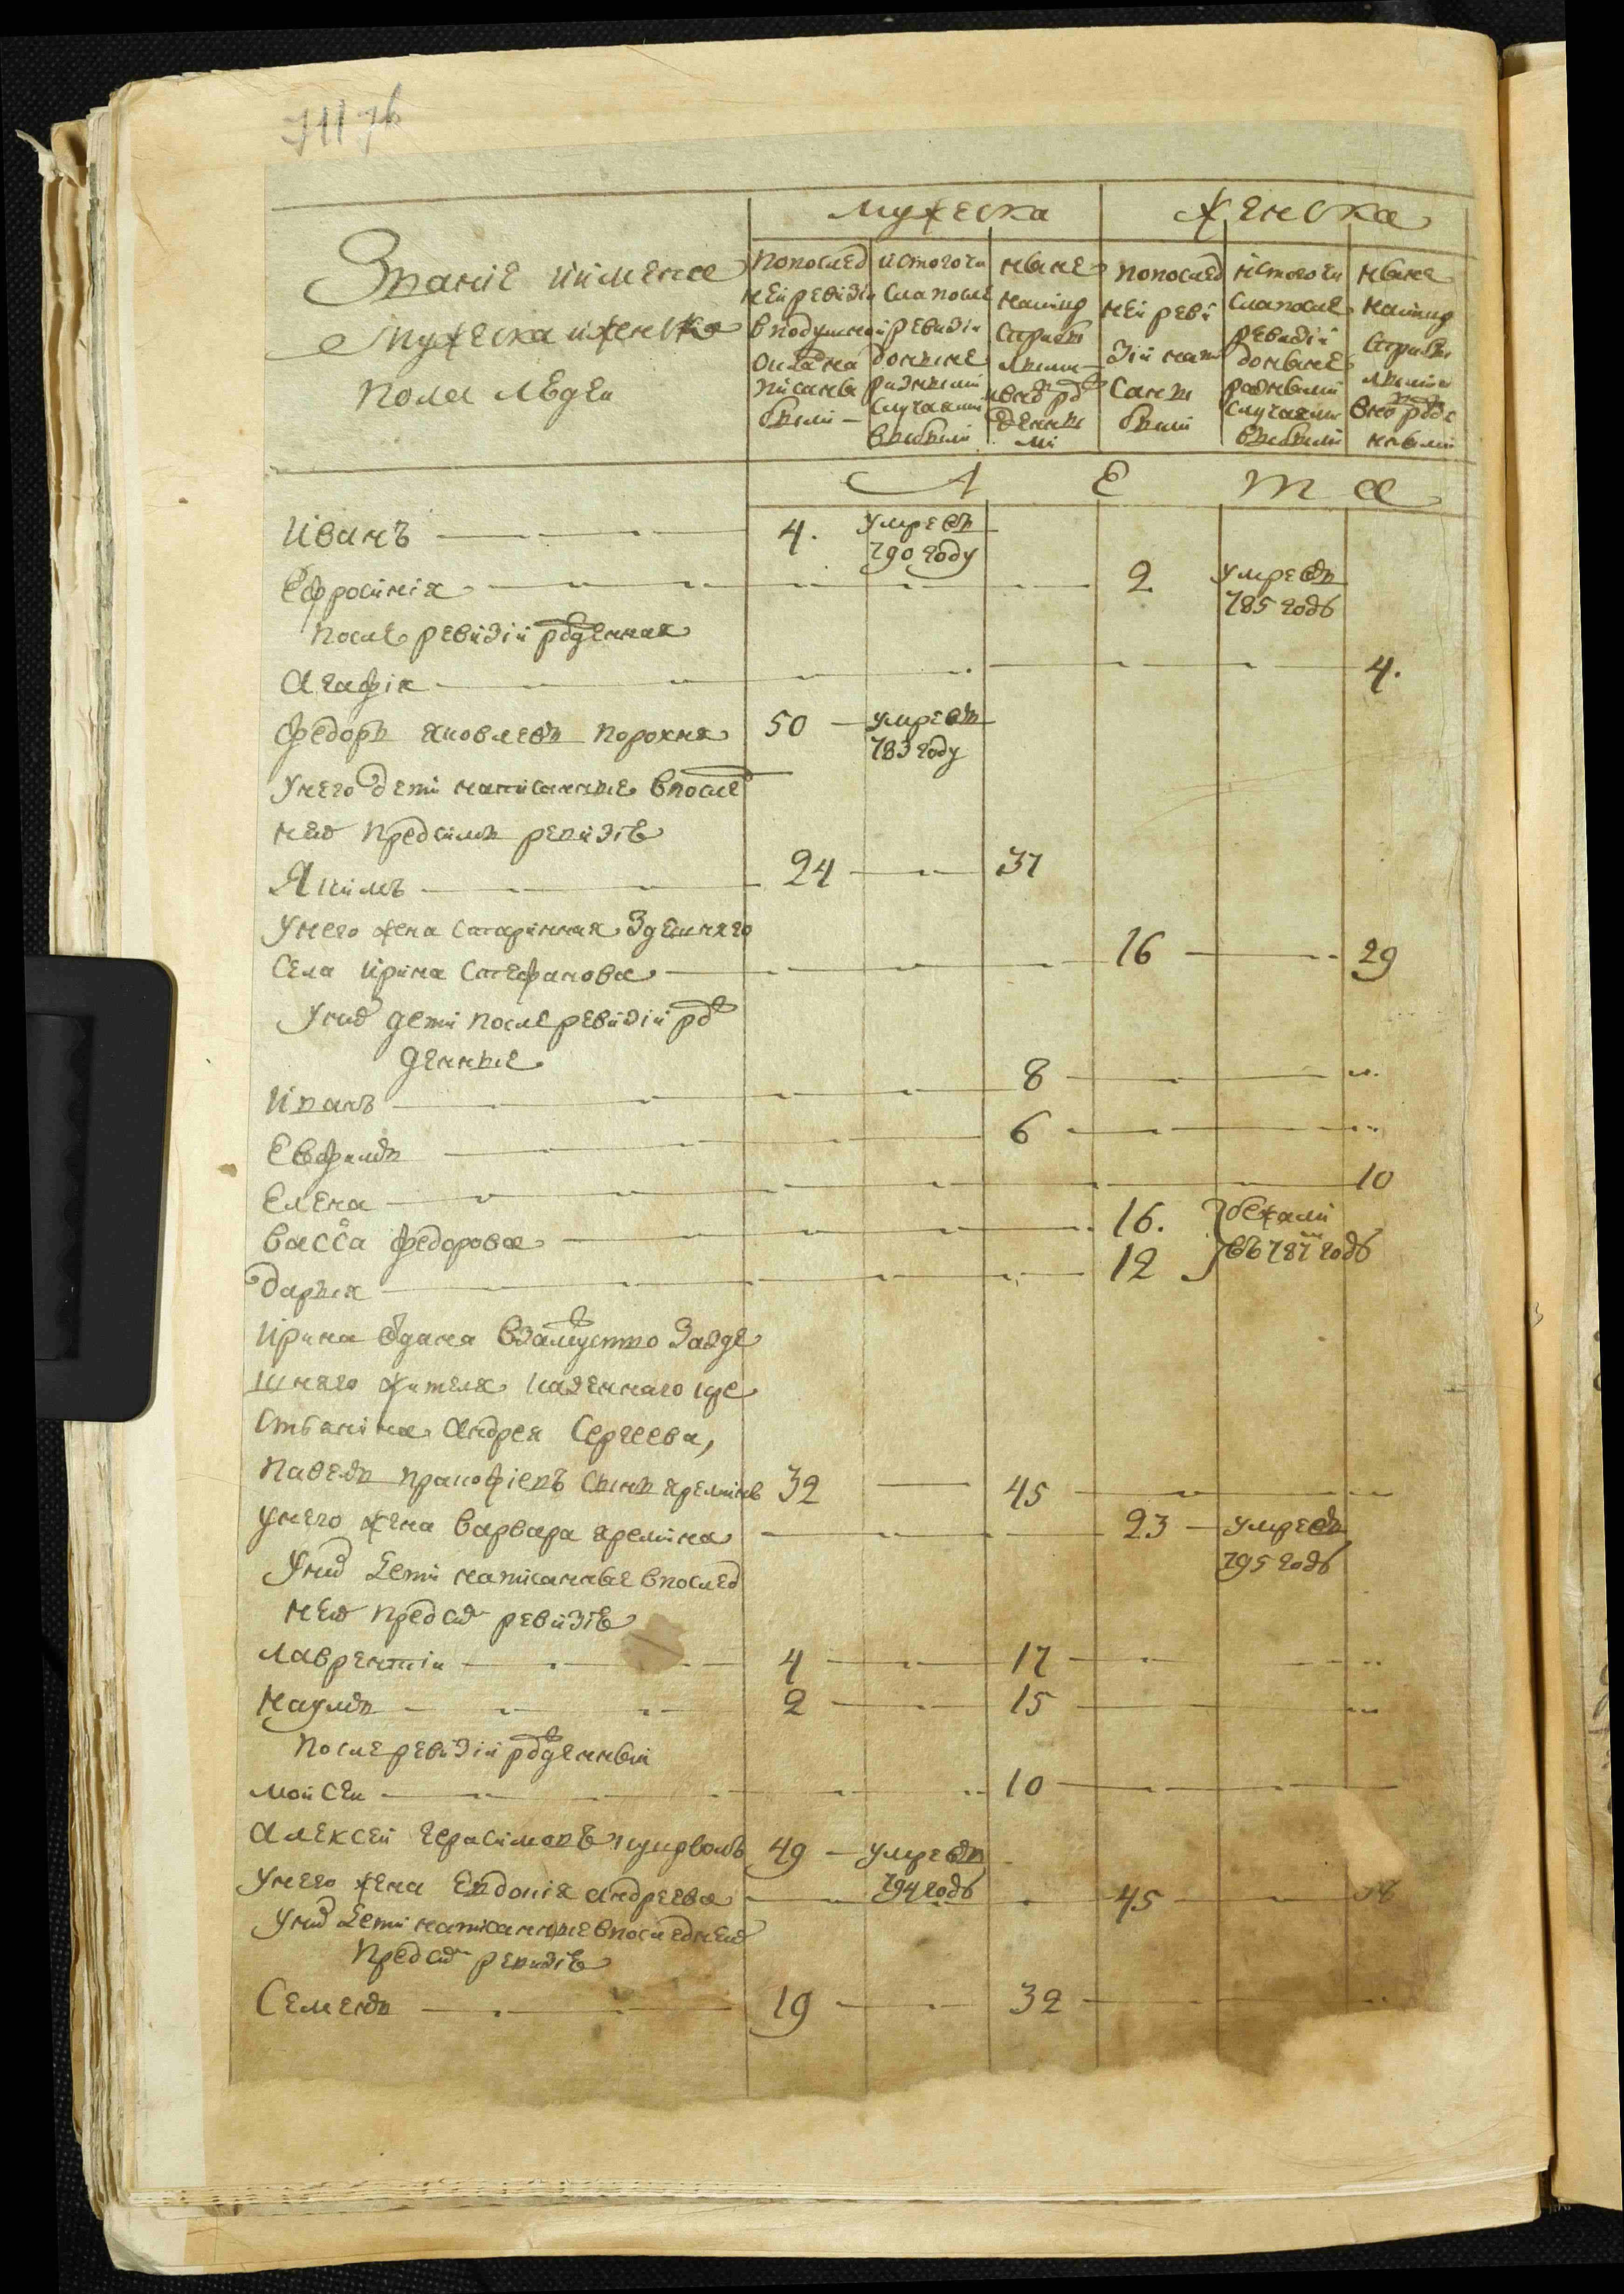 Мужеска Женска
Званïе и имена
мужеска и женска
пола людеи
по послед
неи ревизïи
в подушнои
оклад на
писаны
были
ис того чи
сла после
ревизïи
до ныне
разными
случаями
выбыли
ныне
на лицо
с прибы
лыми
по послед
неи реви
зïи напи
саны
были
ис того чи
сла после
ревизïи
до ныне
разными
случаями
выбыли
ныне
на лицо
с прибы
лыми и
Л Е Т А
Иванъ 4. умре въ
790 году
Ефросинïя 2 умре въ
785 годѣ
После ревизïи рожденная
Агафïя 4.
Федоръ Яковлевъ Порохня 50 умре въ
783 году
У него дети написанные в послед
неи пред симъ ревизïѣ
Якимъ 24 37
У него жена старинная здешняго
села Ирина Стефанова 16 29
У них дети после ревизïи рож
денные
Иванъ 8
Евфимъ 6
Елена 10
Васса Федорова 16. бежали
Дарья 12 въ 787м годѣ
Ирина отдана в замужство за зде
шняго жителя казеннаго кре
стьянина Андрея Сергеева,
Павелъ Пракофïевъ сынъ Яреминъ 32 45
У него жена Варвара Яремина 23 умре въ
795 годѣ
У них дети написанные в послед
неи пред сим ревизïѣ
Лаврентïи 4 17
Наумъ 2 15
После ревизïи рожденныи
Моисеи 10
Алексеи Герасимовъ 49 умре въ
794 годѣ
У него жена Евдокïя Андреева 45
У них дети написанные в последнеи
пред сим ревизïѣ
Семенъ 19 32